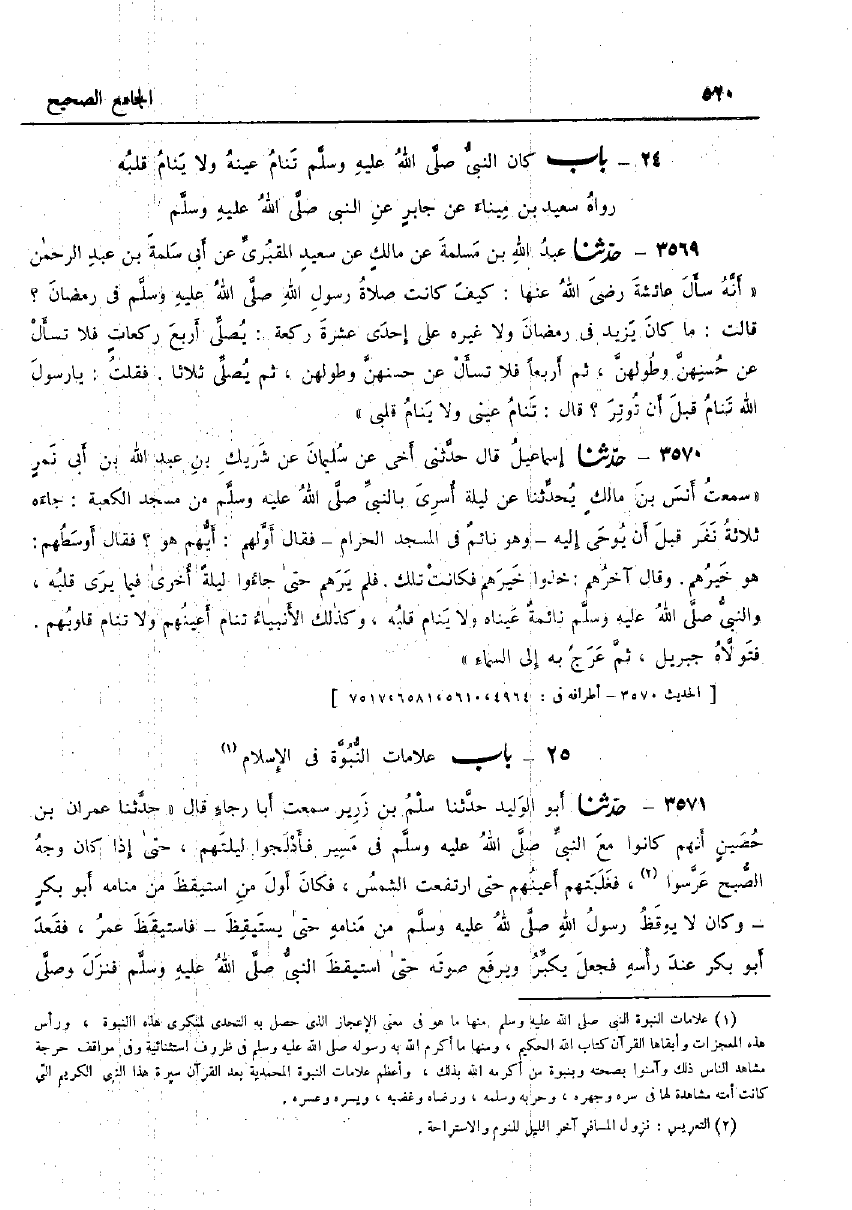 ٥٦٠ الجامع الصحيح
٢٤ – باب كان النبىُّ صلَّى اللهُ عليهِ وسلَّم تَنامُ عينهُ ولا يَنامُ قلبُه
رواهُ سعيد بن مِيناءَ عن جابرٍ عنِ النبى صلَّى اللهُ عليهِ وسلَّم
٣٥٦٩ – حدّثنا عبدُ اللهِ بن مَسلمةَ عن مالكٍ عن سعيدٍ المقبُرىِّ عن أبى سَلمةَ بن عبدِ الرحمٰن
« أنَّهُ سألَ عائشةَ رضىَ اللهُ عنها : كيفَ كانت صلاةُ رسولِ اللهِ صلَّى اللهُ عليهِ وسلَّم فى رمضانَ ؟
قالت : ما كانَ يَزيد فى رمضانَ ولا غيرِه على إحدَى عشرةَ ركعة : يُصلِّى أربعَ ركعاتٍ فلا تسألْ
عن حُسنِهنَّ وطُولهنَّ ، ثم أربعاً فلا تسألْ عن حسنهنَّ وطولهن ، ثم يُصلِّى ثلاثا . فقلتُ : يارسولَ
الله تَنامُ قبلَ أن تُوتِرَ ؟ قال : تَنامُ عينى ولا يَنامُ قلبى »
٣٥٧٠ – حدّثنا إسماعيلُ قال حدَّثنى أخى عن سُليمانَ عن شَريكِ بنِ عبد الله بن أبى نَمرٍ
« سمعتُ أنسَ بنَ مالكٍ يُحدِّثنا عن ليلة أُسرِىَ بالنبىِّ صلَّى اللهُ عليهِ وسلَّم من مسجد الكعبة : جاءه
ثلاثةُ نَفَر قبلَ أن يُوحَى إليه – وهو نائمٌ فى المسجد الحرام – فقال أوَّلهم : أيُّهم هو ؟ فقال أوسَطُهم :
هو خَيرُهم . وقال آخرُهم : خذوا خَيرَهم فكانتْ تلك . فلم يَرَهم حتىٰ جاءُوا ليلةً أُخرىٰ فيما يرَى قلبُه ،
والنبىُّ صلَّى اللهُ عليهِ وسلَّم نائمةٌ عَيناه ولا يَنام قلبُه ، وكذٰلك الأنبياءُ تنام أعينُهم ولا تنام قلوبُهم .
فتَولاَّهُ جبريل ، ثمَّ عَرَجَ به إلى السماء »
[ الحديث ٣٥٧٠ – أطرافه فى : ٤٩٦٤، ٥٦١٠، ٦٥٨١، ٧٥١٧ ]
٢٥ – باب علامات النُّبُوَّة فى الإسلام (١)
٣٥٧١ – حدّثنا أبو الوَليد حدَّثنا سَلْمُ بن زَرِير سمعت أبا رجاءٍ قال « حدَّثنا عمران بن
حُصَينٍ أنهم كانوا معَ النبىِّ صلَّى اللهُ عليه وسلَّم فى مَسِير فأدْلَجوا ليلتَهم ، حتىٰ إذا كان وجهُ
الصُّبح عَرَّسوا (٢) ، فغَلَبَتهم أعينُهم حتى ارتفعت الشمسُ ، فكانَ أولَ منِ استيقظَ من منامه أبو بكرٍ
– وكان لا يوقَظُ رسولُ اللهِ صلَّى اللهُ عليه وسلَّم من مَنامهِ حتىٰ يستَيقِظَ – فاستيقَظَ عمرُ ، فقعَدَ
أبو بكر عندَ رأسهِ فجعلَ يكبِّرُ ويرفَع صوتَه حتىٰ استيقظَ النبىُّ صلَّى اللهُ عليهِ وسلَّم فنزَلَ وصلَّى
(١) علامات النبوة النبى صلى الله عليه وسلم منها ما هو فى معنى الإعجاز الذى حصل به التحدى لمنكرى هذه النبوة ، ورأس
هذه المعجزات وأبقاها القرآن كتاب الله الحكيم ، ومنها ما أكرم الله به رسوله صلى الله عليه وسلم فى ظروف استثنائية وفى مواقف حرجة
مشاهد الناس ذلك وآمنوا بصحته وبنبوة من أكرمه الله بذلك ، وأعظم علامات النبوة المحمدية بعد القرآن سيرة هذا النبى الكريم التى
كانت أمته مشاهدة لها فى سره وجهره ، وحربه وسلمه ، ورضاه وغضبه ، ويسره وعسره .
(٢) التعريس : نزول المسافر آخر الليل للنوم والاستراحة .